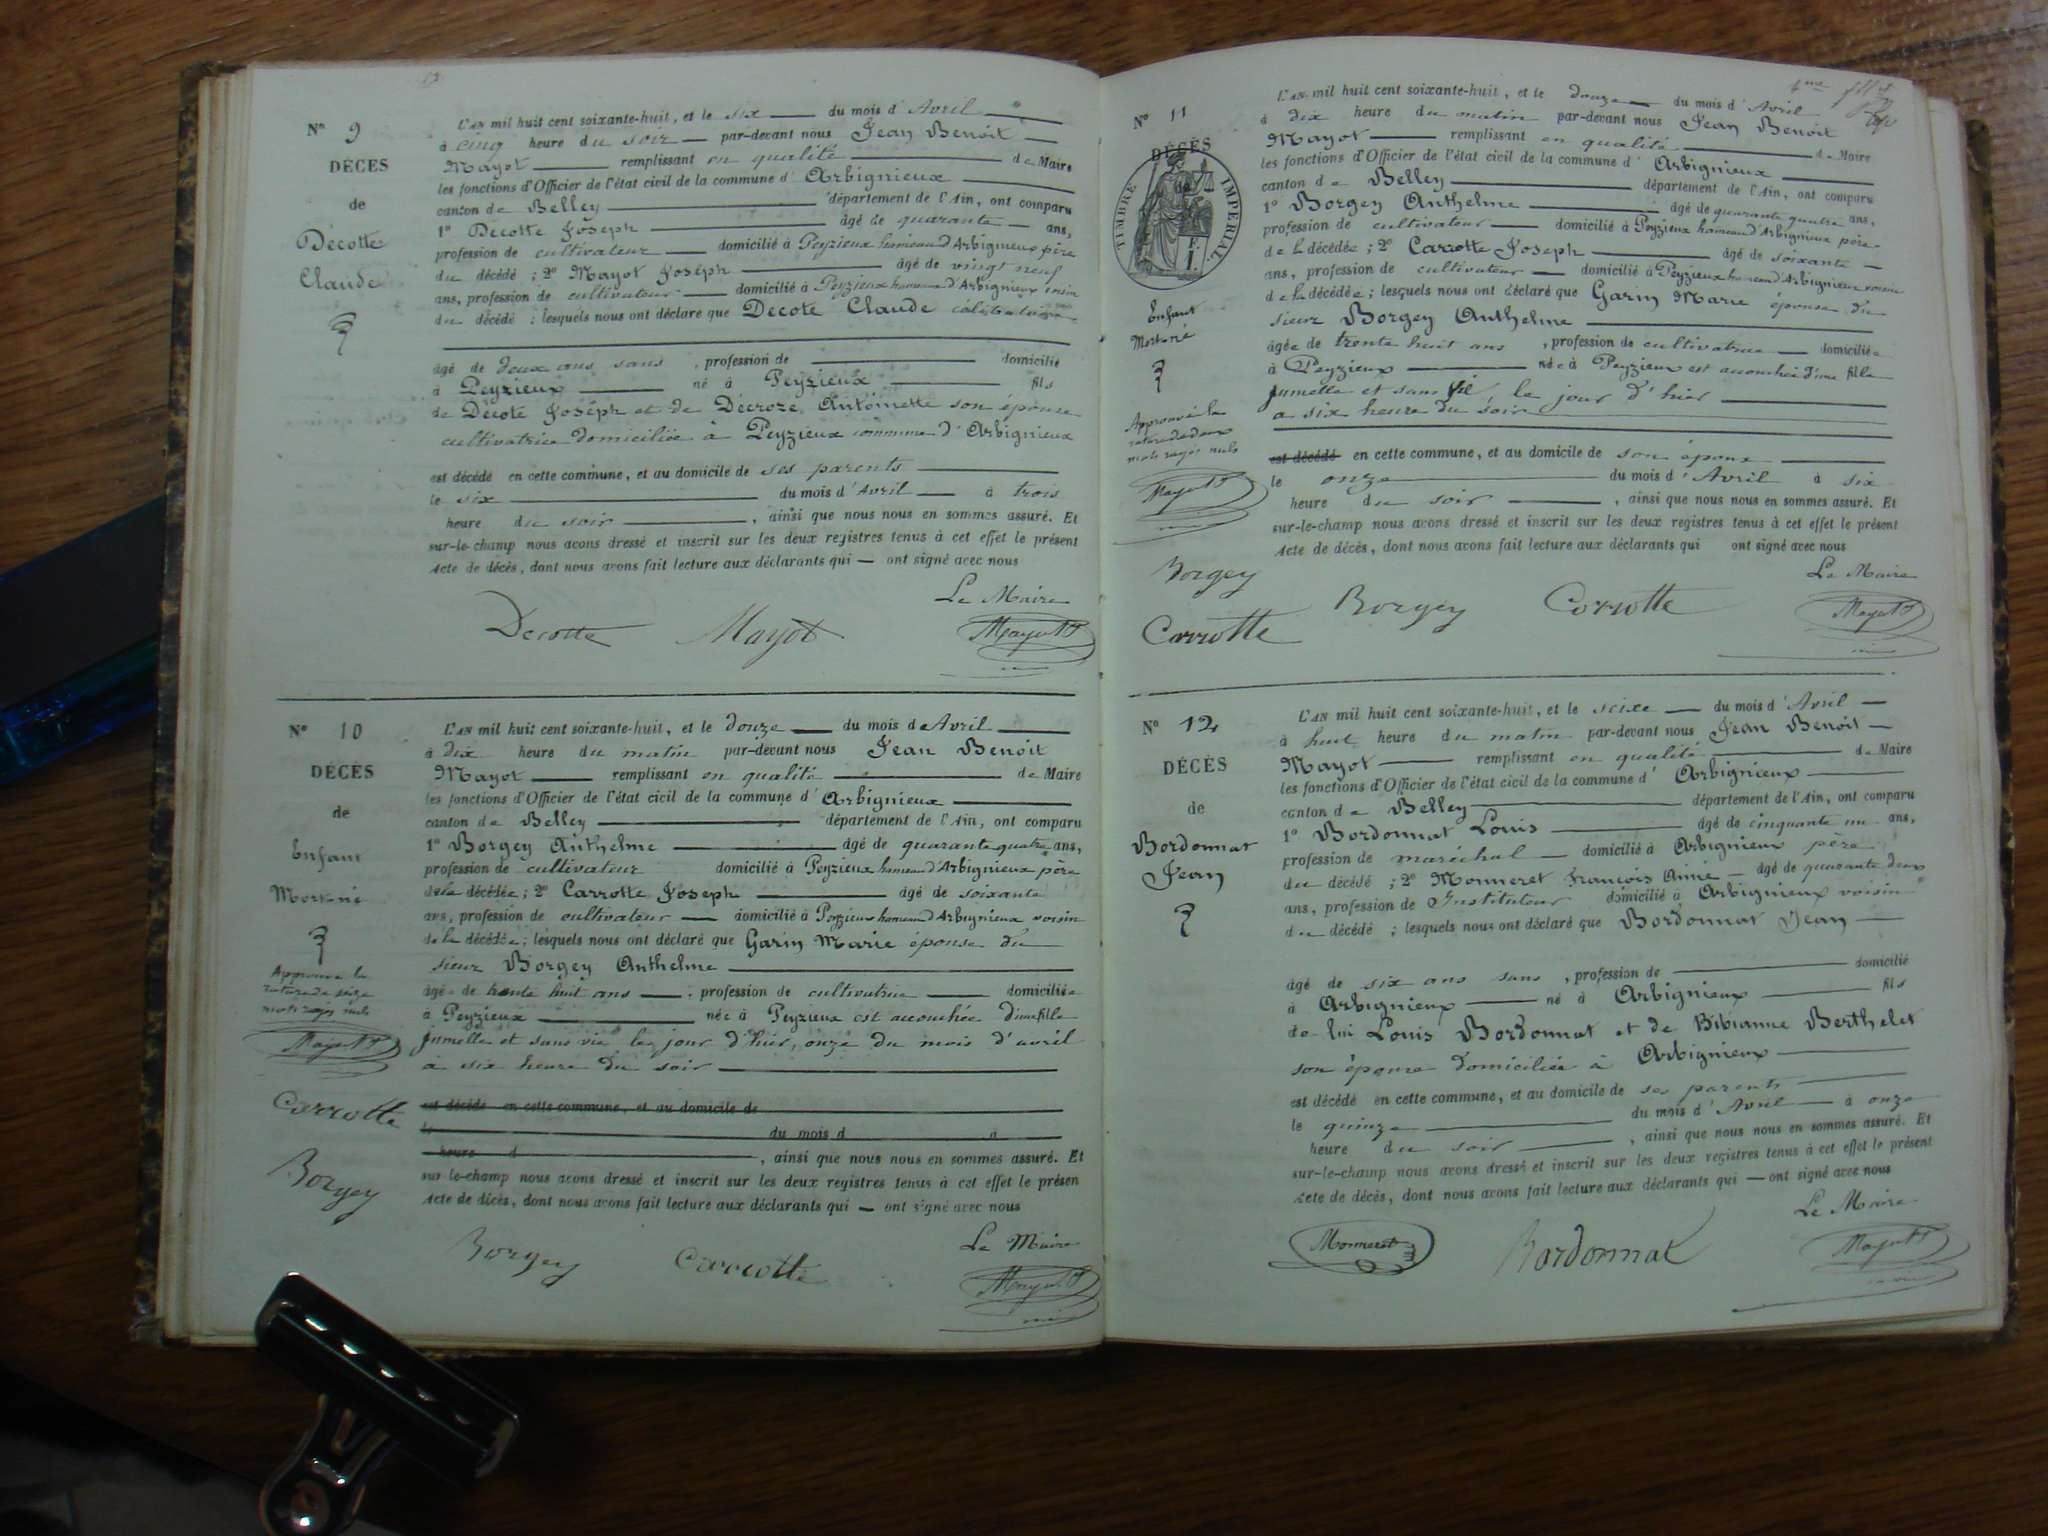 Nº 9
DÉCÈS
de
Decotte
Claude
L'AN mil huit cent soixante-huit, et le six du mois d'Avril
à cinq heure du soir par-devant nous Jean Benoit
Mayot remplissant en qualité de Maire
les fonctions d'Officier de l'état civil de la commune d'Arbignieux
canton de Belley département de l'Ain, ont comparu
1º Decotte Joseph âgé de quarante ans,
profession de cultivateur domicilié à Peyzieux hameau d'Arbignieux père
du décédé ; 2º Mayot Joseph âgé de vingt neuf
ans, profession de cultivateur domicilié à Peyzieux hameau d'Arbignieux voisin
du décédé ; lesquels nous ont déclaré que Decote Claude célibataire
âgé de deux ans sans , profession de domicilié
à Peyzieux né à Peyzieux fils
de Décote Joséph et de Décroze Antoinette son épouse
cultivatrice domiciliée à Peyzieux commune d'Arbignieux
est décédé en cette commune, et au domicile de ses parents
le six du mois d'Avril à trois
heure du soir , ainsi que nous nous en sommes assuré. Et
sur-le-champ nous avons dressé et inscrit sur les deux registres tenus à cet effet le présent
Acte de décès, dont nous avons fait lecture aux déclarants qui ont signé avec nous
Le Maire
Decotte Mayot Mayot
Nº 10
DÉCÈS
de
Enfant
Mortné
Approuvé la
rature de seize
mots rayés nuls
Mayot
Carrotte
Borgey
L'AN mil huit cent soixante-huit, et le douze du mois de Avril
à dix heure du matin par-devant nous Jean Benoit
Mayot remplissant en qualité de Maire
les fonctions d'Officier de l'état civil de la commune d'Arbignieux
canton de Belley département de l'Ain, ont comparu
1º Borgey Anthelme âgé de quarante quatre ans,
profession de cultivateur domicilié à Peyzieux hameau d'Arbignieux père
de la décédée ; 2º Carrotte Joseph âgé de soixante
ans, profession de cultivateur domicilié à Peyzieux hameau d'Arbignieux voisin
de la décédée ; lesquels nous ont déclaré que Garin Marie épouse du
sieur Borgey Anthelme
âgée de trente huit ans , profession de cultivatrice domiciliée
à Peyzieux née à Peyzieux est accouchée d'une fille
jumelle et sans vie le jour d'hier, onze du mois d'avril
à six heure du soir
est décédé en cette commune, et au domicile de
le du mois d à
heure d , ainsi que nous nous en sommes assuré. Et
sur-le-champ nous avons dressé et inscrit sur les deux registres tenus à cet effet le présen
Acte de décès, dont nous avons fait lecture aux déclarants qui ont signé avec nous
Le Maire
Borgey Carrotte Mayot
Nº 11
DÉCÈS
de
TIMBRE IMPERIAL
Enfant
Mortné
Approuvé la
rature de deux
mots rayés nuls
Mayot
Borgey
Carrotte
L'AN mil huit cent soixante-huit, et le douze du mois d'Avril
à dix heure du matin par-devant nous Jean Benoit
Mayot remplissant en qualité de Maire
les fonctions d'Officier de l'état civil de la commune d'Arbignieux
canton de Belley département de l'Ain, ont comparu
1º Borgey Anthelme âgé de quarante quatre ans,
profession de cultivateur domicilié à Peyzieux hameau d'Arbignieux père
de la décédée ; 2º Carrotte Joseph âgé de soixante
ans, profession de cultivateur domicilié à Peyzieux hameau d'Arbignieux voisin
de la décédée ; lesquels nous ont déclaré que Garin Marie épouse du
sieur Borgey Anthelme
âgée de trente huit ans , profession de cultivatrice domiciliée
à Peyzieux née à Peyzieux est accouchée d'une fille
jumelle et sans le jour d'hier
a six heure du soir
est décédé en cette commune, et au domicile de son époux
le onze du mois d'Avril à six
heure du soir , ainsi que nous nous en sommes assuré. Et
sur-le-champ nous avons dressé et inscrit sur les deux registres tenus à cet effet le présent
Acte de décès, dont nous avons fait lecture aux déclarants qui ont signé avec nous
Le Maire
Borgey Carrotte Mayot
Nº 12
DÉCÈS
de
Bordonnat
Jean
L'AN mil huit cent soixante-huit, et le seize du mois d'Avril
à huit heure du matin par-devant nous Jean Benoit
Mayot remplissant en qualité de Maire
les fonctions d'Officier de l'état civil de la commune d'Arbignieux
canton de Belley département de l'Ain, ont comparu
1º Bordonnat Louis âgé de cinquante un ans,
profession de maréchal domicilié à Arbignieux père
du décédé ; 2º Monneret François Aimé âgé de quarante deux
ans, profession de Instituteur domicilié à Arbignieux voisin
du décédé ; lesquels nous ont déclaré que Bordonnat Jean
âgé de six ans sans , profession de domicilié
à Arbignieux né à Arbignieux fils
de lui Louis Bordonnat et de Bibianne Berthelet
son épouse domiciliée à Arbignieux
est décédé en cette commune, et au domicile de ses parents
le quinze du mois d'Avril à onze
heure du soir , ainsi que nous nous en sommes assuré. Et
sur-le-champ nous avons dressé et inscrit sur les deux registres tenus à cet effet le présent
Acte de décès, dont nous avons fait lecture aux déclarants qui ont signé avec nous
Le Maire
Monneret Bordonnat Mayot